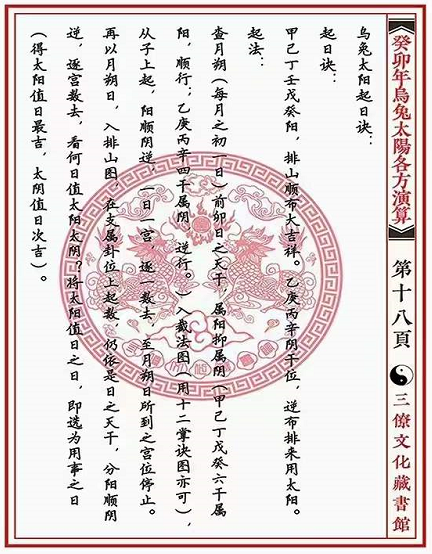 癸卯年烏兔太陽各方演算
第十八頁
三僚文化藏書館
乌兔太阳起日诀：
起日诀：
甲己丁壬戊癸阳，排山顺布大吉祥。乙庚丙辛阴干位，逆布排来用太阳。
起法：
查月朔（每月之初一日）前卯日之天干，属阳抑属阴（甲己丁戊癸六干属
阳，顺行；乙庚丙辛四干属阴，逆行。）入截法图（用十二掌诀图亦可），
从子上起，阳顺阴逆，一日一宫，逐一数去，至月朔日所到之宫位停止。
再以月朔日，入排山图，在支属卦位上起数，仍依是日之天干，分阳顺阴
逆，逐宫数去，看何日值太阳太阴？将太阳值日之日，即选为用事之日
（得太阳值日最吉，太阴值日次吉）。